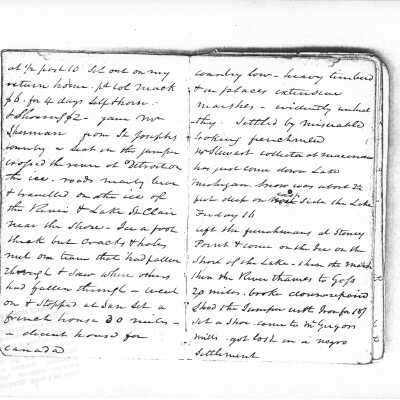 at ½ past 10 Set out on my
return home. pd Col Mack
$6. for 4 days
& Shoeing $2 - gave Mr
Sherman from St Josephs
County a Seat in the jumper
crossed the river at Detroit on
the ice. roads nearly bare
& travelled on the ice of
the River & Lake St Clair
near the Shore - Ice a foot
thick but Cracks & holes
met one team that had fallen
through & Saw where others
had fallen through - went
on & Stopped at Sun Set a
french house 30 miles -
a decent house for
Canada
country low - heavy timbered
& in places extensive
marshes - evidently unheal
thy. Settled by miserable
looking frenchmen
Mr Stewart collector at
has just come down Lake
Michigan. Snow was about 2½
feet deep on Side the Lake
Friday 16
left the frenchmans at Stoney
Point & came on the Ice on the
Shore of the Lake - then the marsh
then the River thames to Goss
20 miles. broke down repaired
Shod the Jumper with Iron for 18/
Set a Shoe - came to McGregors
mills. got lost in a negro
Settlement